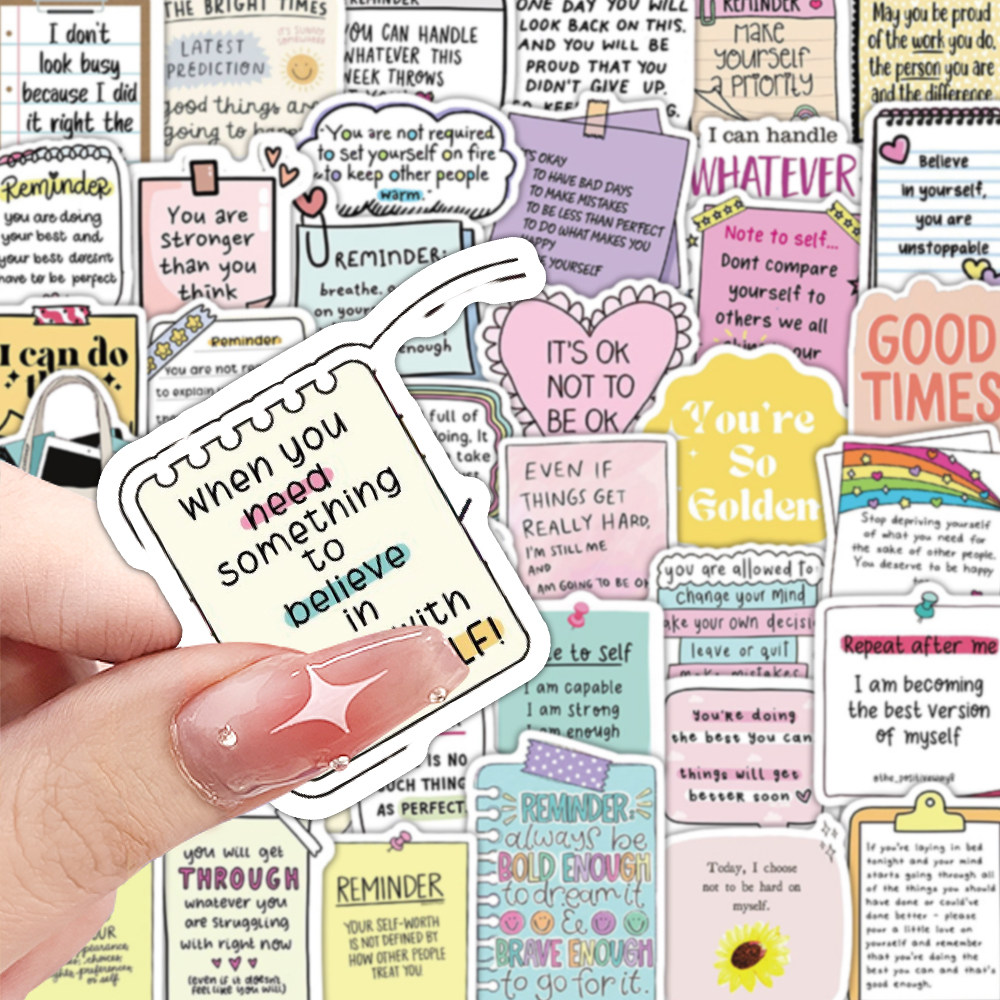 I don't
look busy
because I did
it right the
THE BRIGHT TIMES
LATEST
PREDICTION
good things are
going to happen
REMINDER
YOU CAN HANDLE
WHATEVER THIS
WEEK THROWS
ONE DAY YOU WILL
LOOK BACK ON THIS.
AND YOU WILL BE
PROUD THAT YOU
DIDN'T GIVE UP.
SO KEEP
REMINDER
make
yourself
a priority
May you be proud
of the work you do,
the person you are
and the difference
Reminder
you are doing
your best and
your best doesn't
have to be perfect
You are
stronger
than you
think
"You are not required
to set yourself on fire
to keep other people
warm."
REMINDER:
breathe.
on your
enough
'S OKAY
TO HAVE BAD DAYS
TO MAKE MISTAKES
TO BE LESS THAN PERFECT
TO DO WHAT MAKES YOU
HAPPY
YOURSELF
I can handle
WHATEVER
Note to self...
Dont compare
yourself to
others we all
our
Believe
in yourself,
you are
unstoppable
I can do
Reminder
you are not re
to explain
when you
need
something
to
believe
in
with
LF!
full of
oing. It
take
IT'S OK
NOT TO
BE OK
You're
So
Golden
GOOD
TIMES
EVEN IF
THINGS GET
REALLY HARD,
I'M STILL ME
AND
I AM GOING TO BE O
Stop depriving yourself
of what you need for
the sake of other people.
You deserve to be happy
you are allowed to:
change your mind
ake your own decisi
leave or quit
make mistakes
e to self
I am capable
I am strong
I am enough
Repeat after me
I am becoming
the best version
of myself
You're doing
the best you can
things will get
better soon
IS NO
SUCH THING
AS PERFECT.
REMINDER:
always be
BOLD ENOUGH
to dream it
&
BRAVE ENOUGH
to go for it.
you will get
THROUGH
whatever you
are struggling
with right now
(even if it doesn't
feel like you will)
REMINDER
YOUR SELF-WORTH
IS NOT DEFINED BY
HOW OTHER PEOPLE
TREAT YOU
Today, I choose
not to be hard on
myself.
If you're laying in bed
tonight and your mind
starts going through all
of the things you should
have done or could've
done better - please
pour a little love on
yourself and remember
that you're doing the
best you can and that's
good enough.